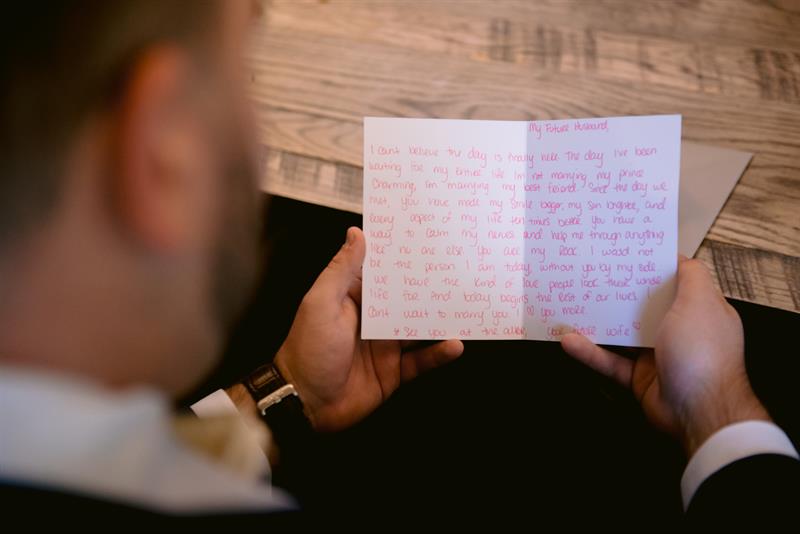 My Future Husband,
I cant believe the day is finally here. The day I've been
waiting for my entire life. Im not marrying my prince
Charming, I'm marrying my best friend. Since the day we
met, you have made my smile bigger, my sun brighter, and
every aspect of my life ten times better. You have a
way to calm my nerves and help me through anything
like no one else. You are my rock. I would not
be the person I am today, without you by my side
we have the kind of love people look their whole
life for. And today begins the rest of our lives. I
Cant wait to marry you. I ♡ you more.
* See you at the alter, your future wife ♡